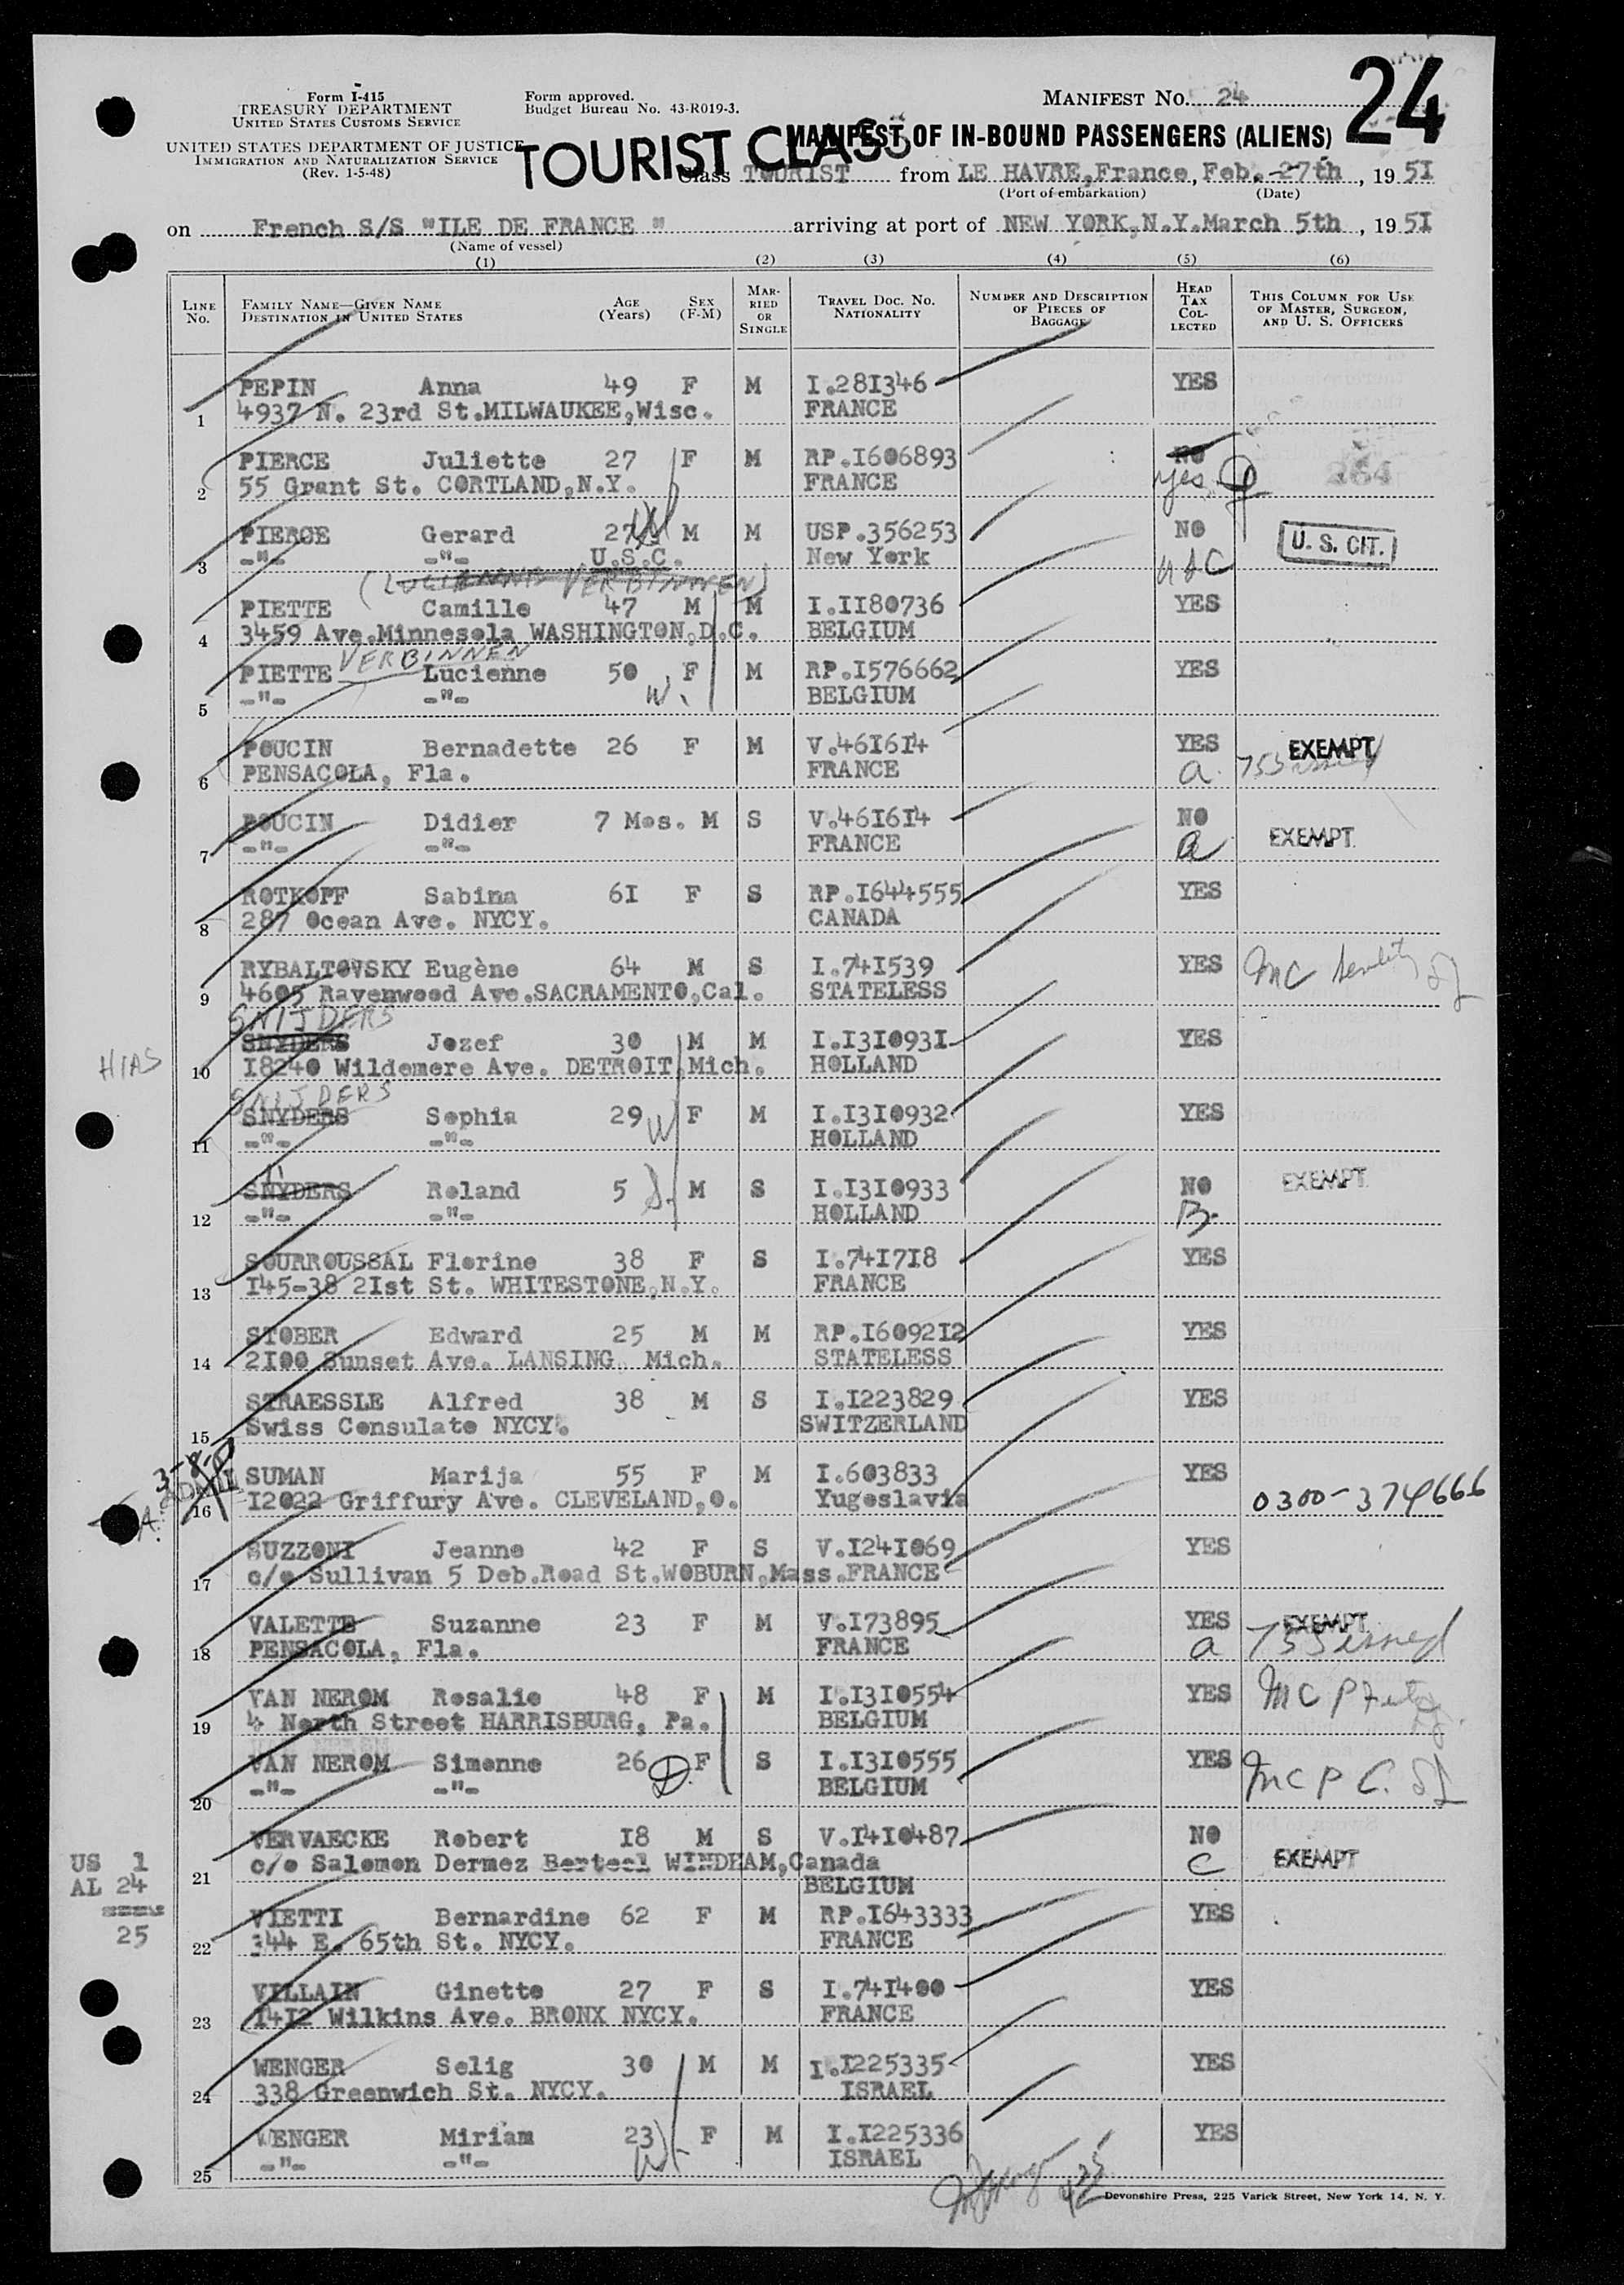 Form I-415
TREASURY DEPARTMENT
UNITED STATES CUSTOMS SERVICE
UNITED STATES DEPARTMENT OF JUSTICE
IMMIGRATION AND NATURALIZATION SERVICE
(Rev. 1-5-48)
Form approved.
Budget Bureau No. 43-R019-3.
MANIFEST No. 24
24
TOURIST CLASS
MANIFEST OF IN-BOUND PASSENGERS (ALIENS)
Class TOURIST from LE HAVRE,France, Feb. 27th, 1951
(Port of embarkation) (Date)
on French S/S "ILE DE FRANCE " arriving at port of NEW YORK,N.Y.March 5th, 1951
(Name of vessel)
(1) (2) (3) (4) (5) (6)
LINE No. FAMILY NAME—GIVEN NAME DESTINATION IN UNITED STATES AGE (Years) SEX (F-M) MARRIED OR SINGLE TRAVEL DOC. No. NATIONALITY NUMBER AND DESCRIPTION OF PIECES OF BAGGAGE HEAD TAX COLLECTED THIS COLUMN FOR USE OF MASTER, SURGEON, AND U. S. OFFICERS
PEPIN Anna 49 F M I.281346 YES
1 4937 N. 23rd St.MILWAUKEE,Wisc. FRANCE
PIERCE Juliette 27 F M RP.I606893 NO 264
2 55 Grant St. CORTLAND,N.Y. FRANCE yes
PIERCE Gerard 27 M M USP.356253 NO U. S. CIT.
3 -"- -"- U.S.C. New York USC
(LUCIENNE VERBINNEN)
PIETTE Camille 47 M M I.II80736 YES
4 3459 Ave.Minnesola WASHINGTON,D.C. BELGIUM
VERBINNEN
PIETTE Lucienne 50 F M RP.I576662 YES
5 -"- -"- W. BELGIUM
POUCIN Bernadette 26 F M V.46I6I4 YES EXEMPT
6 PENSACOLA, Fla. FRANCE a 755 issued
POUCIN Didier 7 Mos. M S V.46I6I4 NO EXEMPT
7 -"- -"- FRANCE a
ROTKOPF Sabina 6I F S RP.I644555 YES
8 287 Ocean Ave. NYCY. CANADA
RYBALTOVSKY Eugène 64 M S I.74I539 YES MC senility
9 4605 Ravenwood Ave.SACRAMENTO,Cal. STATELESS
SNIJDERS
SNYDERS Jozef 30 M M I.I3I093I YES
HIAS 10 I8240 Wildemere Ave. DETROIT,Mich. HOLLAND
SNIJDERS
SNYDERS Sophia 29 W F M I.I3I0932 YES
11 -"- -"- HOLLAND
SNYDERS Roland 5 S. M S I.I3I0933 NO EXEMPT
12 -"- -"- HOLLAND B
SOURROUSSAL Florine 38 F S I.74I7I8 YES
13 I45-38 2Ist St. WHITESTONE,N.Y. FRANCE
STOBER Edward 25 M M RP.I6092I2 YES
14 2I00 Sunset Ave. LANSING, Mich. STATELESS
STRAESSLE Alfred 38 M S I.I223829 YES
15 Swiss Consulate NYCY. SWITZERLAND
3-8
SUMAN Marija 55 F M I.603833 YES
16 I2022 Griffury Ave. CLEVELAND,O. Yugoslavia 0300-374666
SUZZONI Jeanne 42 F S V.I24I069 YES
17 c/o Sullivan 5 Deb.Road St.WOBURN,Mass.FRANCE
VALETTE Suzanne 23 F M V.I73895 YES EXEMPT
18 PENSACOLA, Fla. FRANCE a 755 issued
VAN NEROM Rosalie 48 F M I.I3I0554 YES MC P
19 4 North Street HARRISBURG, Pa. BELGIUM
VAN NEROM Simonne 26 D F S I.I3I0555 YES MC P C.
20 -"- -"- BELGIUM
VERVAECKE Robert I8 M S V.I4I0487 NO EXEMPT
21 c/o Salomon Dermez Berteel WINDHAM,Canada C
BELGIUM
US 1
AL 24
====
25
VIETTI Bernardine 62 F M RP.I643333 YES
22 344 E. 65th St. NYCY. FRANCE
VILLAIN Ginette 27 F S I.74I400 YES
23 I4I2 Wilkins Ave. BRONX NYCY. FRANCE
WENGER Selig 30 M M I.I225335 YES
24 338 Greenwich St. NYCY. ISRAEL
WENGER Miriam 23 F M I.I225336 YES
25 -"- -"- W ISRAEL
Devonshire Press, 225 Varick Street, New York 14, N. Y.